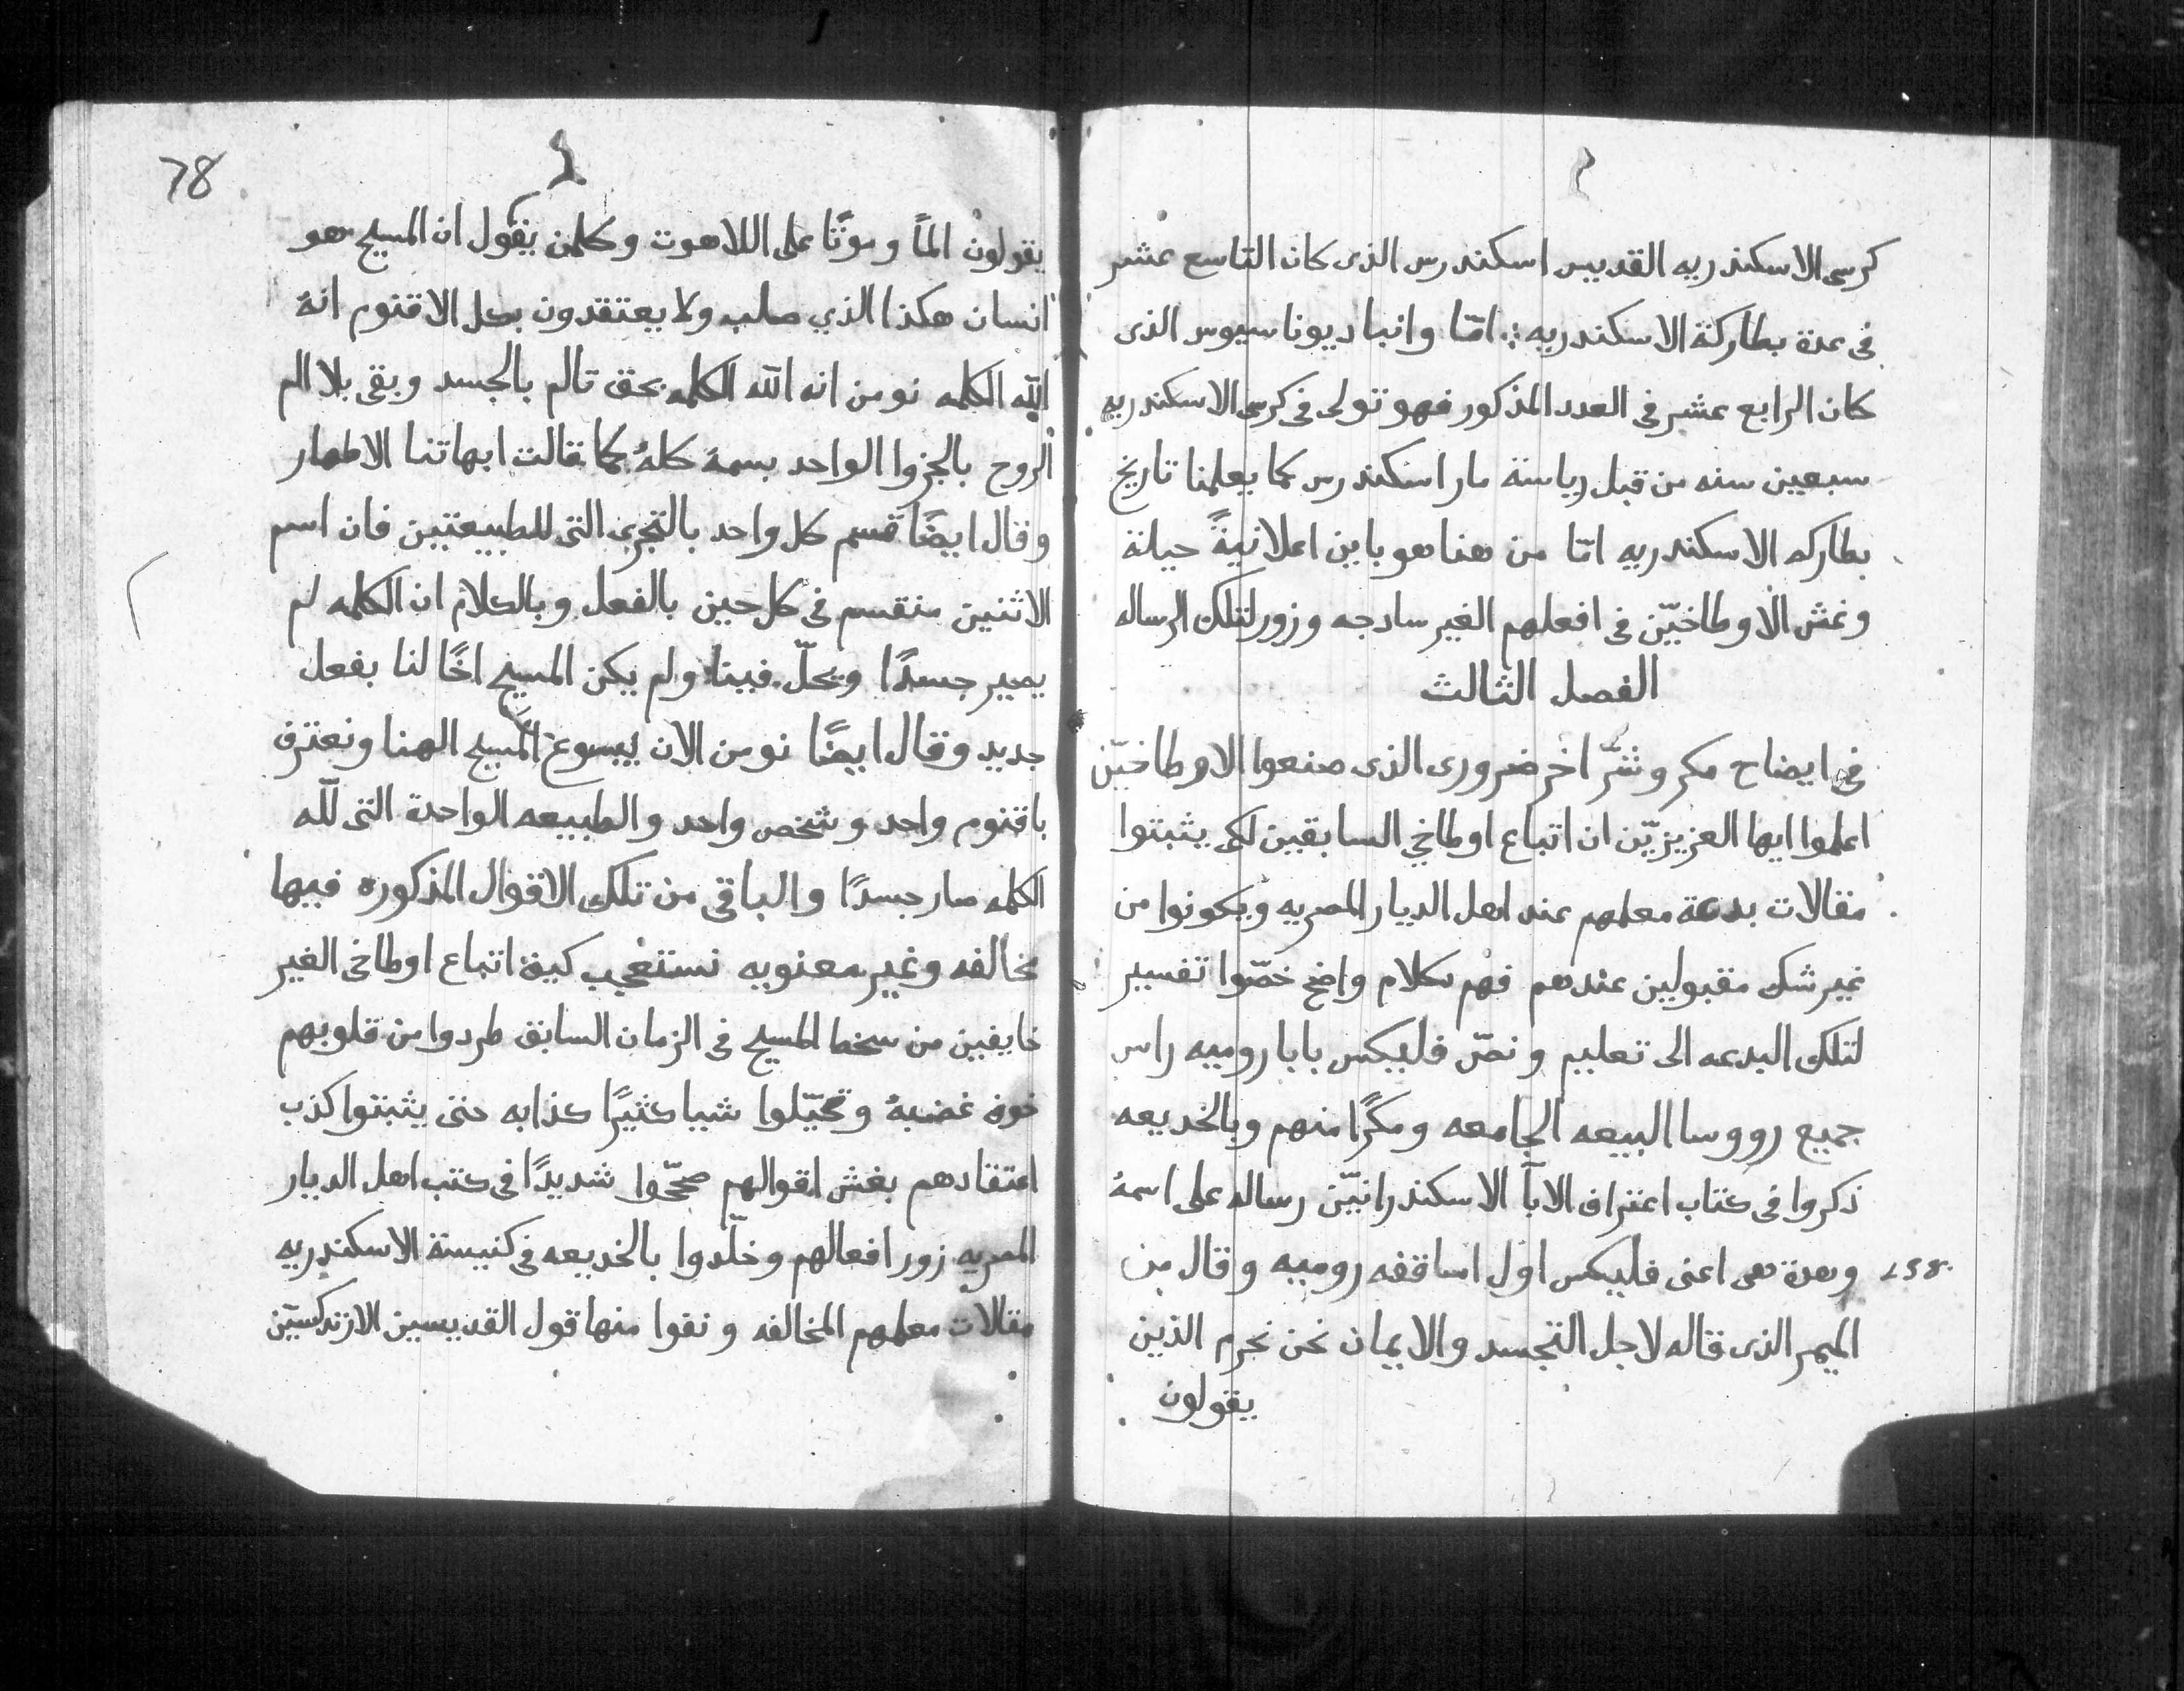 كرسى الاسكندريه القديس اسكندرس الذى كان التاسع عشر
فى عدة بطاركة الاسكندريه :. امّا وانبا ديوناسيوس الذى
كان الرابع عشر فى العدد المذكور فهو تولى فى كرسى الاسكندريه
سبعين سنه من قبل رياسة مار اسكندرس كما يعلمنا تاريخ
بطاركه الاسكندريه امّا من هنا هو باين اعلانيةً حيلة
وغش الاوطاخيّن فى افعلهم الغير سادجه وزور لتلك الرساله
الفصل الثالث
فى ايضاح مكر وشرّ اخر ضرورى الذى صنعوا الاوطاخيّن
اعلموا ايها العزيزيّن ان اتباع اوطاخي السابقين لكى يثبتوا
مقالات بدعة معلمهم عند اهل الديار المصريه ويكونوا من
غير شك مقبولين عندهم فهم بكلام واضح خصّوا تفسير
لتلك البدعه الى تعليم ونصّ فليكس بابا روميه راس
جميع رووسا البيعه الجامعه ومكرًا منهم وبالخديعه
ذكروا فى كتاب اعتراف الابآ الاسكندرانيّن رساله على اسمهُ
وهدة هى اعنى فليكس اول اساقفه روميه وقال من
الميمر الذى قاله لاجل التجسد والايمان نحن نحرم الذين
يقولون
78
يقولون الماً وموتًا على اللاهوت وكلمن يقول ان المسيح هو
انسان هكذا الذي صلب ولا يعتقدون بكل الاقنوم انهُ
الله الكلمه نومن انه الله الكلمه بحق تالم بالجسد وبقى بلا الم
الروح بالجزوا الواحد بسمهُ كلهُ كما قالت ابهاتنا الاطهار
وقال ايضًا قسم كل واحد بالتجزى التى للطبيعتين فان اسم
الاثنين منقسم فى كل حين بالفعل وبالكلام ان الكلمه لم
يصير جسدًا ويحلّ فينا ولم يكن المسيح اخًا لنا بفعل
جديد وقال ايضًا نومن الان بيسوع المسيح الهنا ونعترف
باقنوم واحد وشخص واحد والطبيعه الواحدة التى للّه
الكلمه صار جسدًا والباقى من تلك الاقوال المذكوره فيها
مخالفه وغير معنويه نستعجب كيف اتباع اوطاخى الغير
خايفين من سخط المسيح فى الزمان السابق طردوا من قلوبهم
خوف غضبهُ وتحيّلوا شيا كثيرًا كذابه حتى يثبتوا كذب
اعتقادهم بغش اقوالهم شديدًا فى كتب اهل الديار
المصريه زور افعالهم وخلّدوا بالخديعه فى كنيسة الاسكندريه
مقالات معلمهم المخالفه ونفوا منها قول القديسين الارتدكسيّن